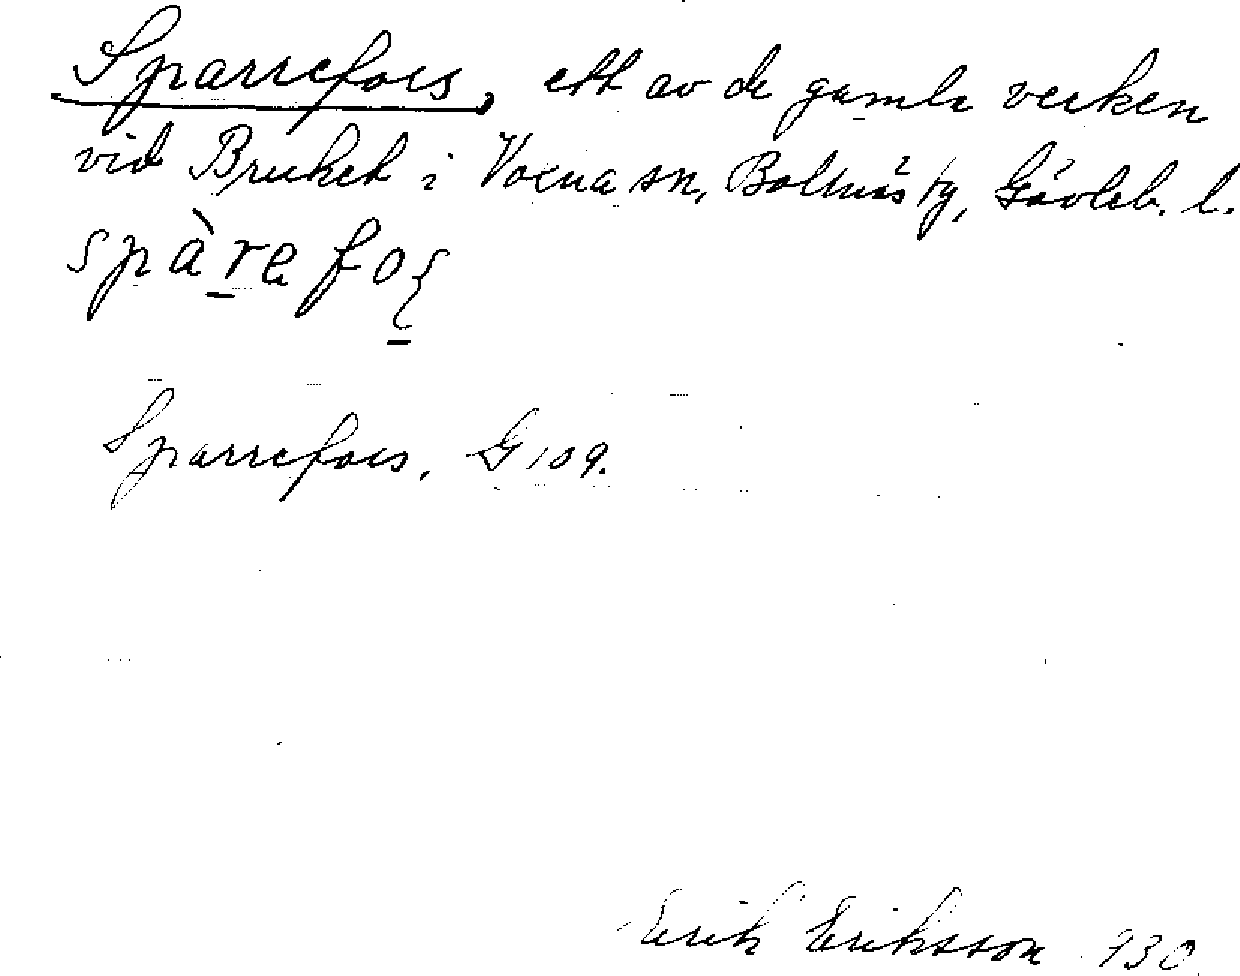 Sparrefors, ett av de gamla verken
vid Bruket i Voxna sn, Bollnäs tg, Gävleb. l.
spàrefoʂ
Sparrefors. G 109.
Erik Eriksson 930